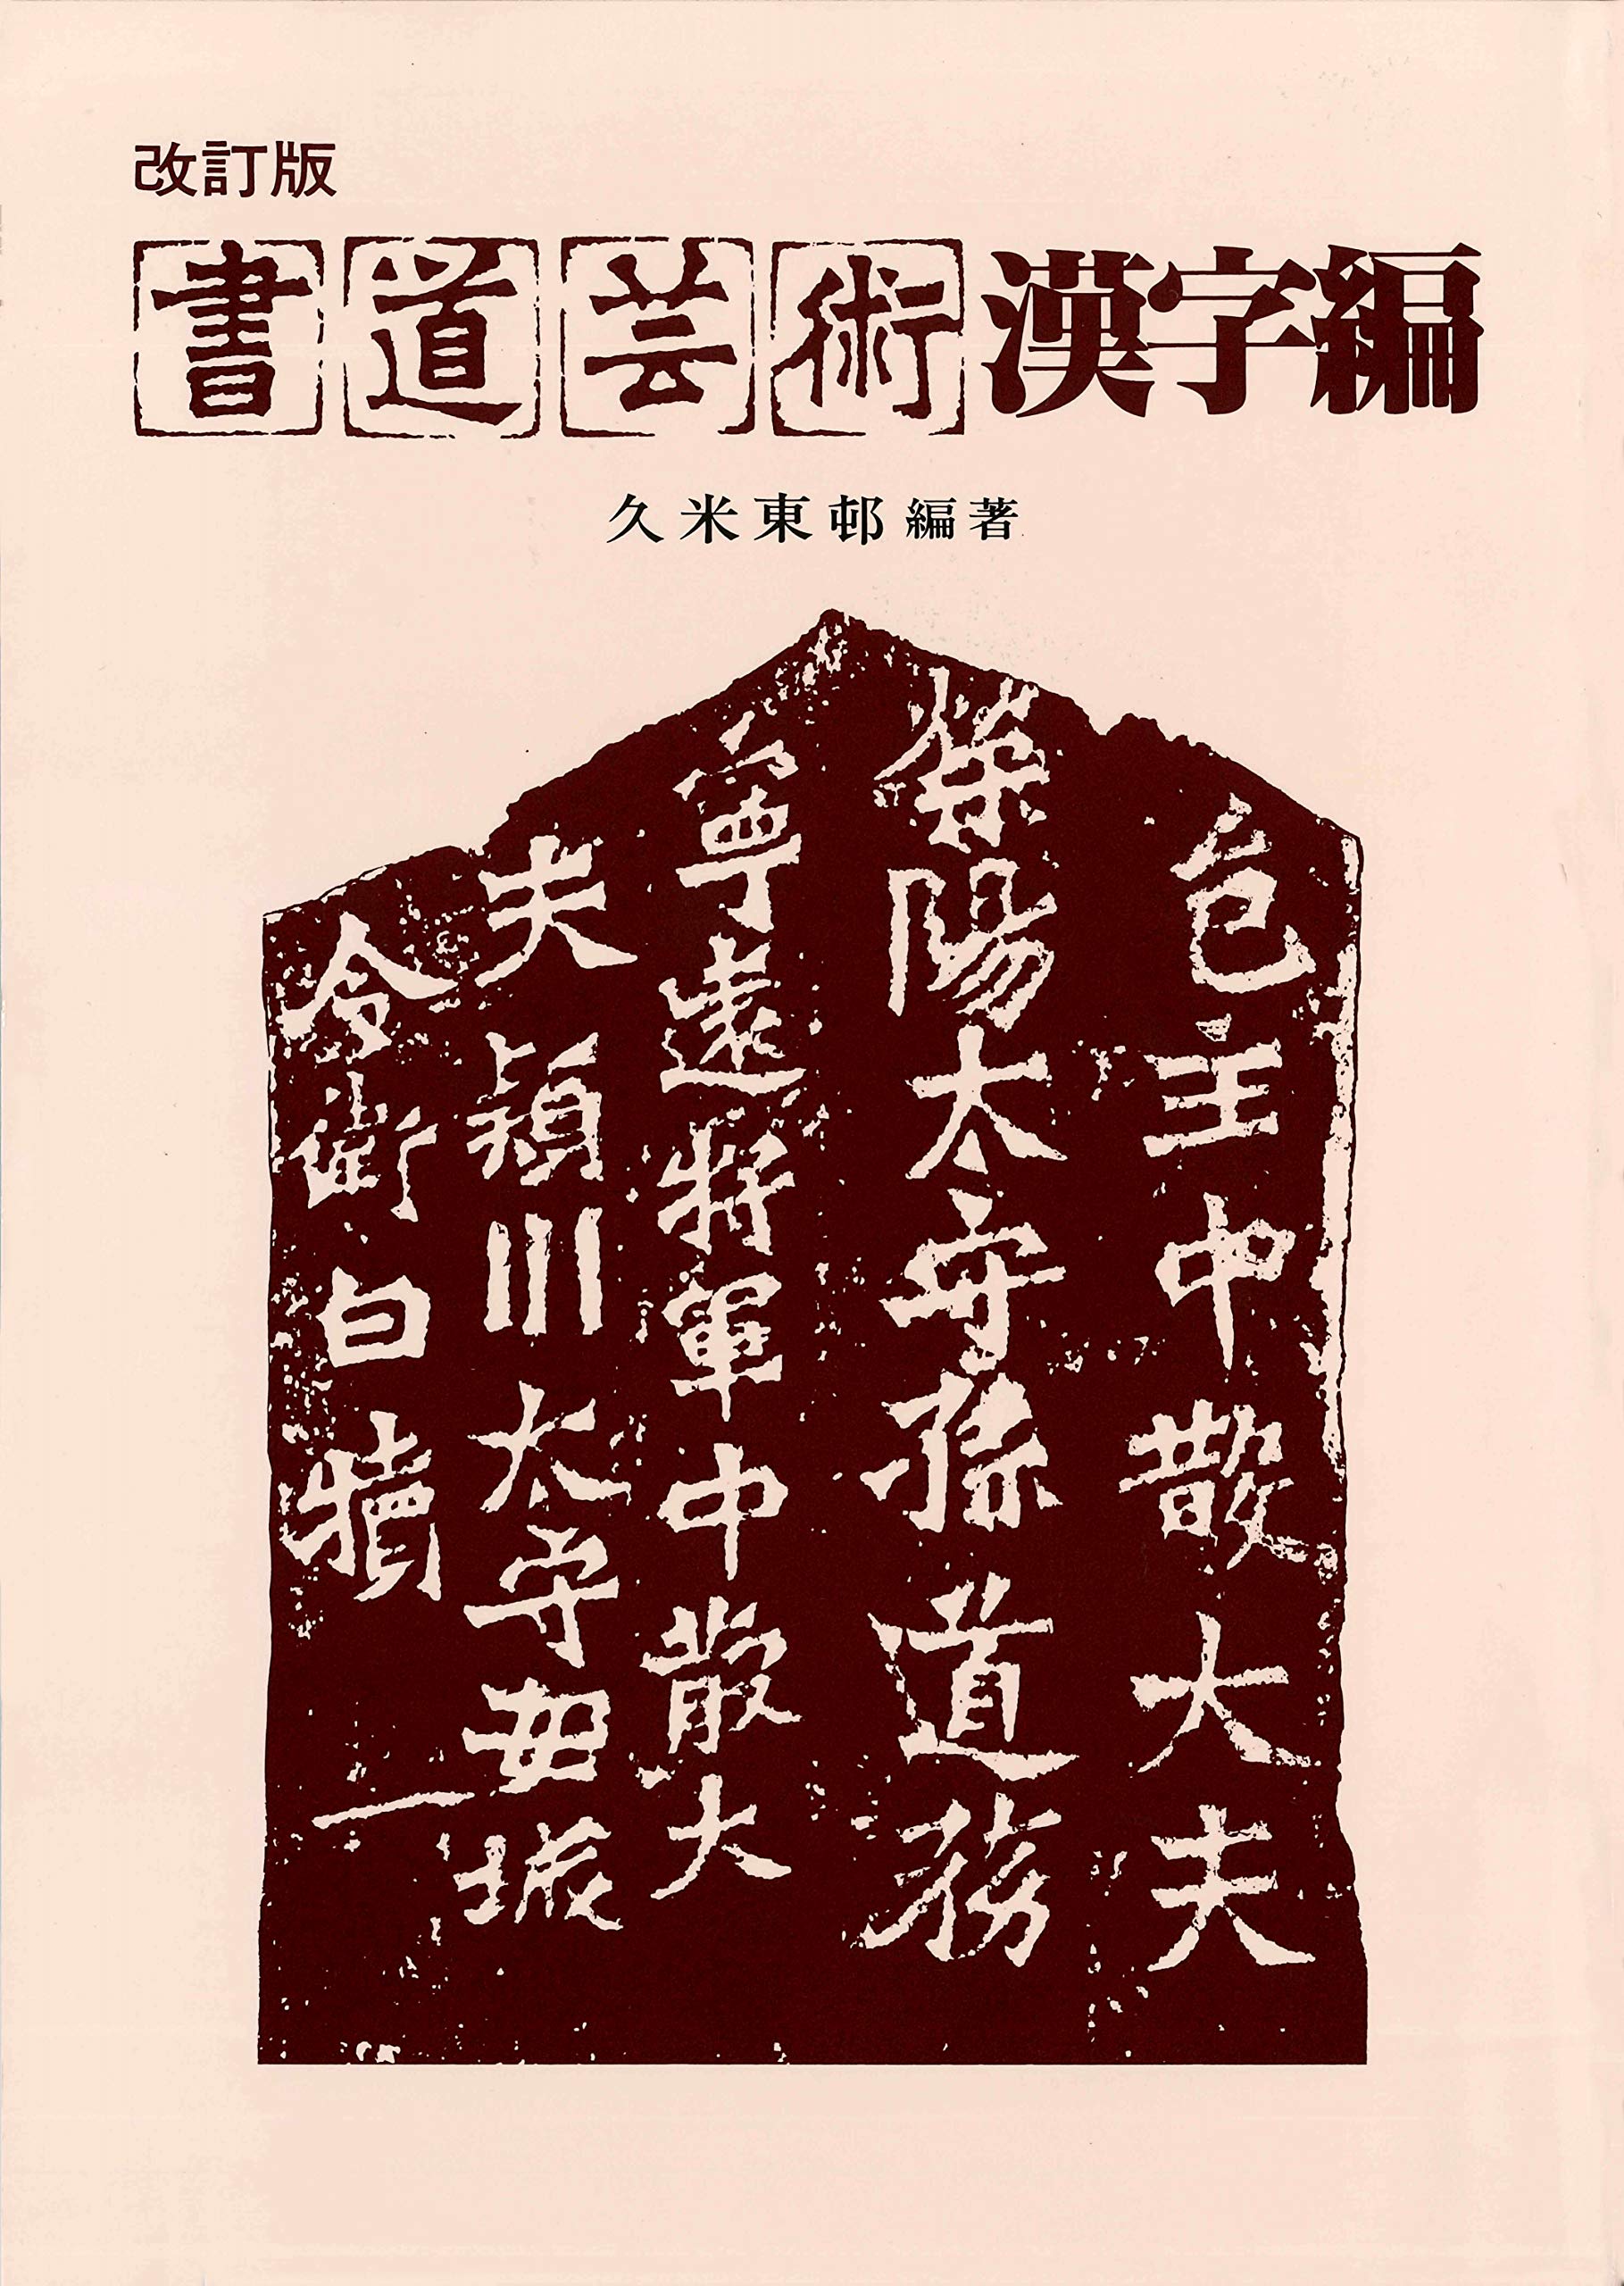 改訂版
書道芸術漢字編
久米東邨編著
邑主中散大夫
滎陽太守孫道務
寧遠将軍中散大
夫潁川太守安城
令衛白犢